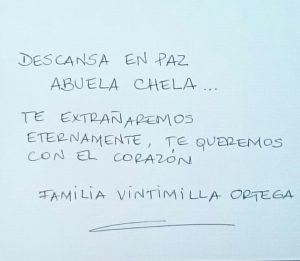 DESCANSA EN PAZ
ABUELA CHELA...
TE EXTRAÑAREMOS
ETERNAMENTE, TE QUEREMOS
CON EL CORAZÓN
FAMILIA VINTIMILLA ORTEGA